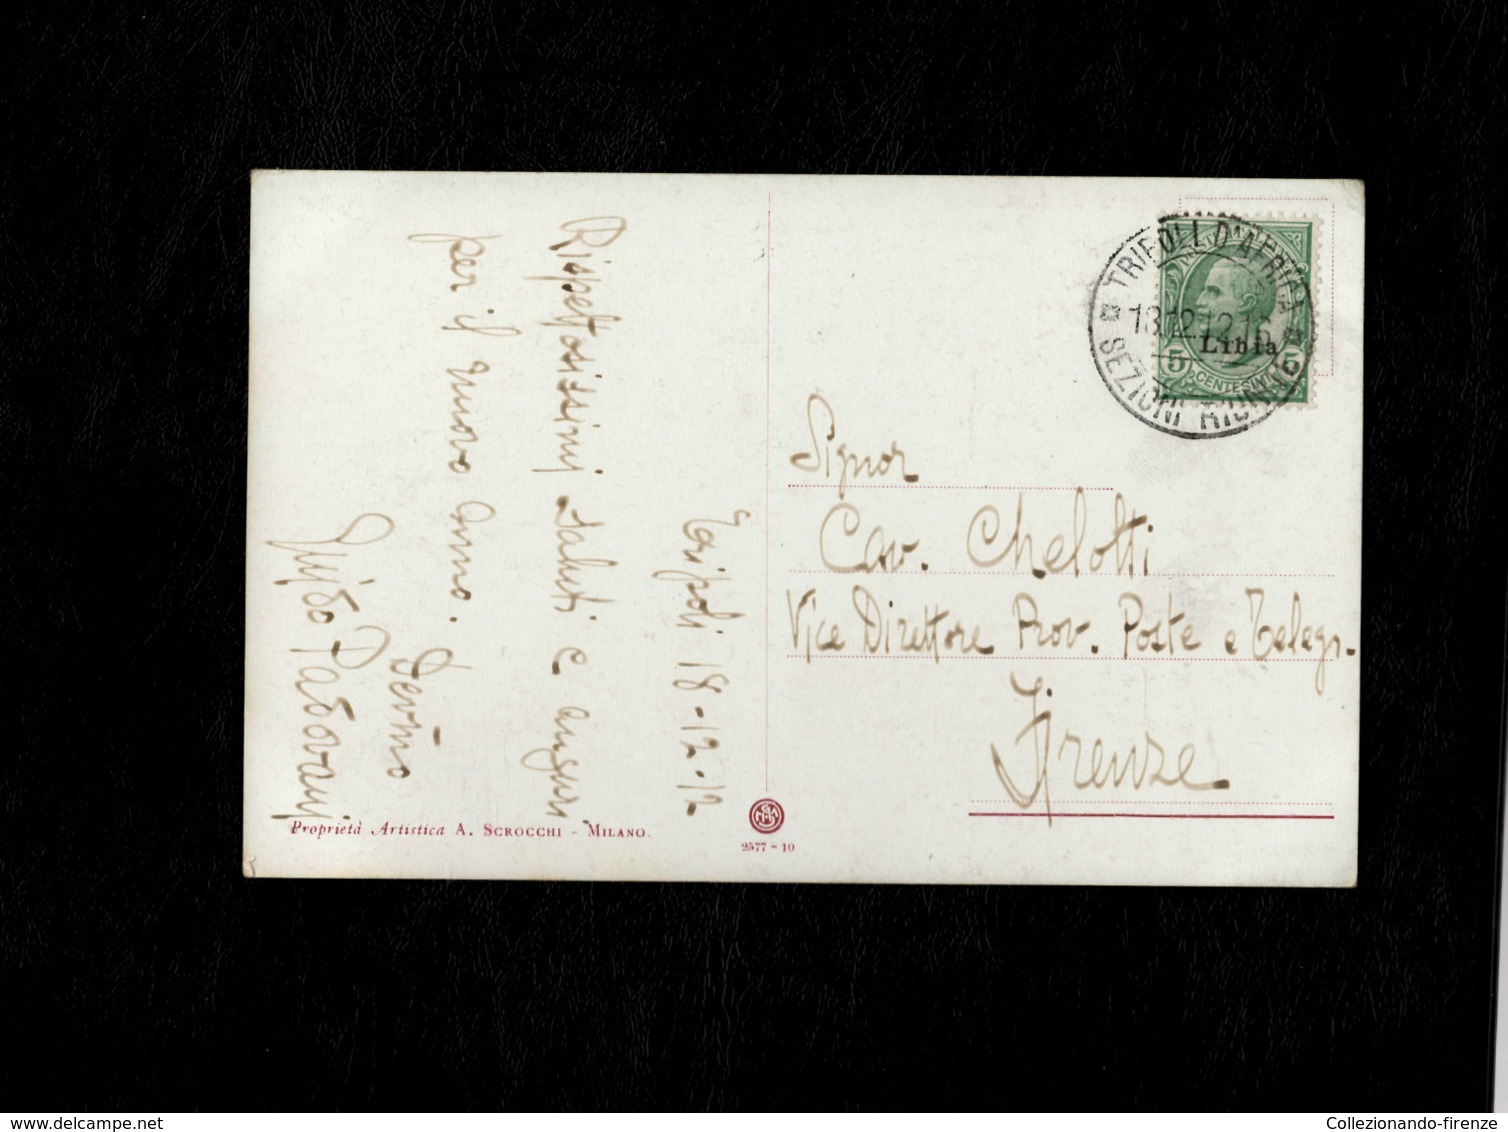 Tripoli 18-12-12
Rispettosissimi saluti e auguri
per il nuovo anno. Devmo
Guido Padovani
Signor
Cav. Chelotti
Vice Direttore Prov. Poste e Telegr.
Firenze
TRIPOLI D'AFRICA
18.12.12.16
SEZIONI RIUNITE
Libia
5 CENTESIMI 5
Proprietà Artistica A. SCROCCHI - MILANO.
2577-10
Collezionando-firenze
delcampe.net